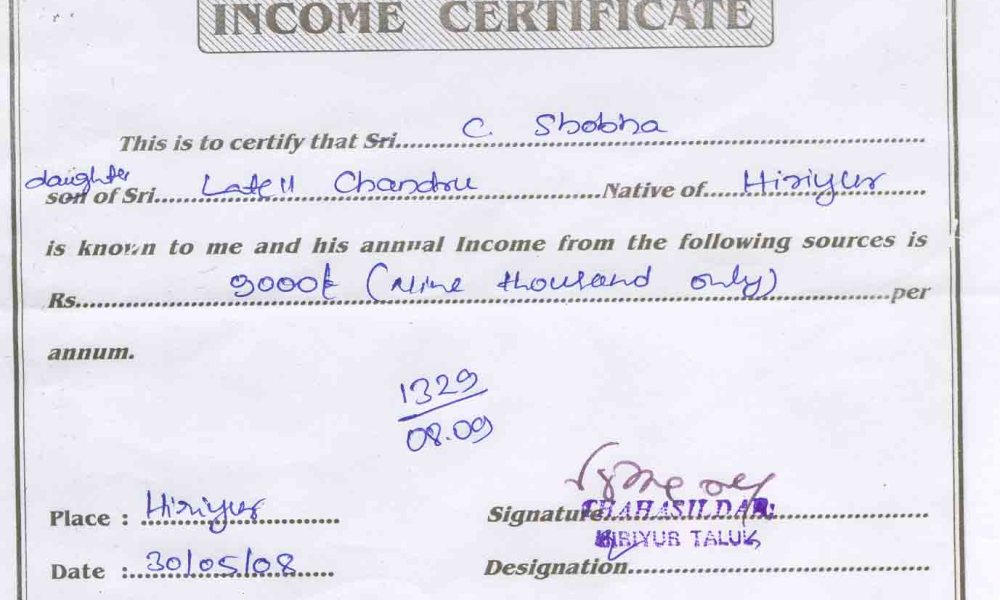 INCOME CERTIFICATE
This is to certify that Sri. C. Shobha
daughter
son of Sri. Late|| Chandru Native of Hiriyur
is known to me and his annual Income from the following sources is
Rs. 9000/- (Nine thousand only) per
annum.
1329
08.09
Place : Hiriyur
Signature TAHASILDAR
HIRIYUR TALUK
Date : 30/05/08
Designation